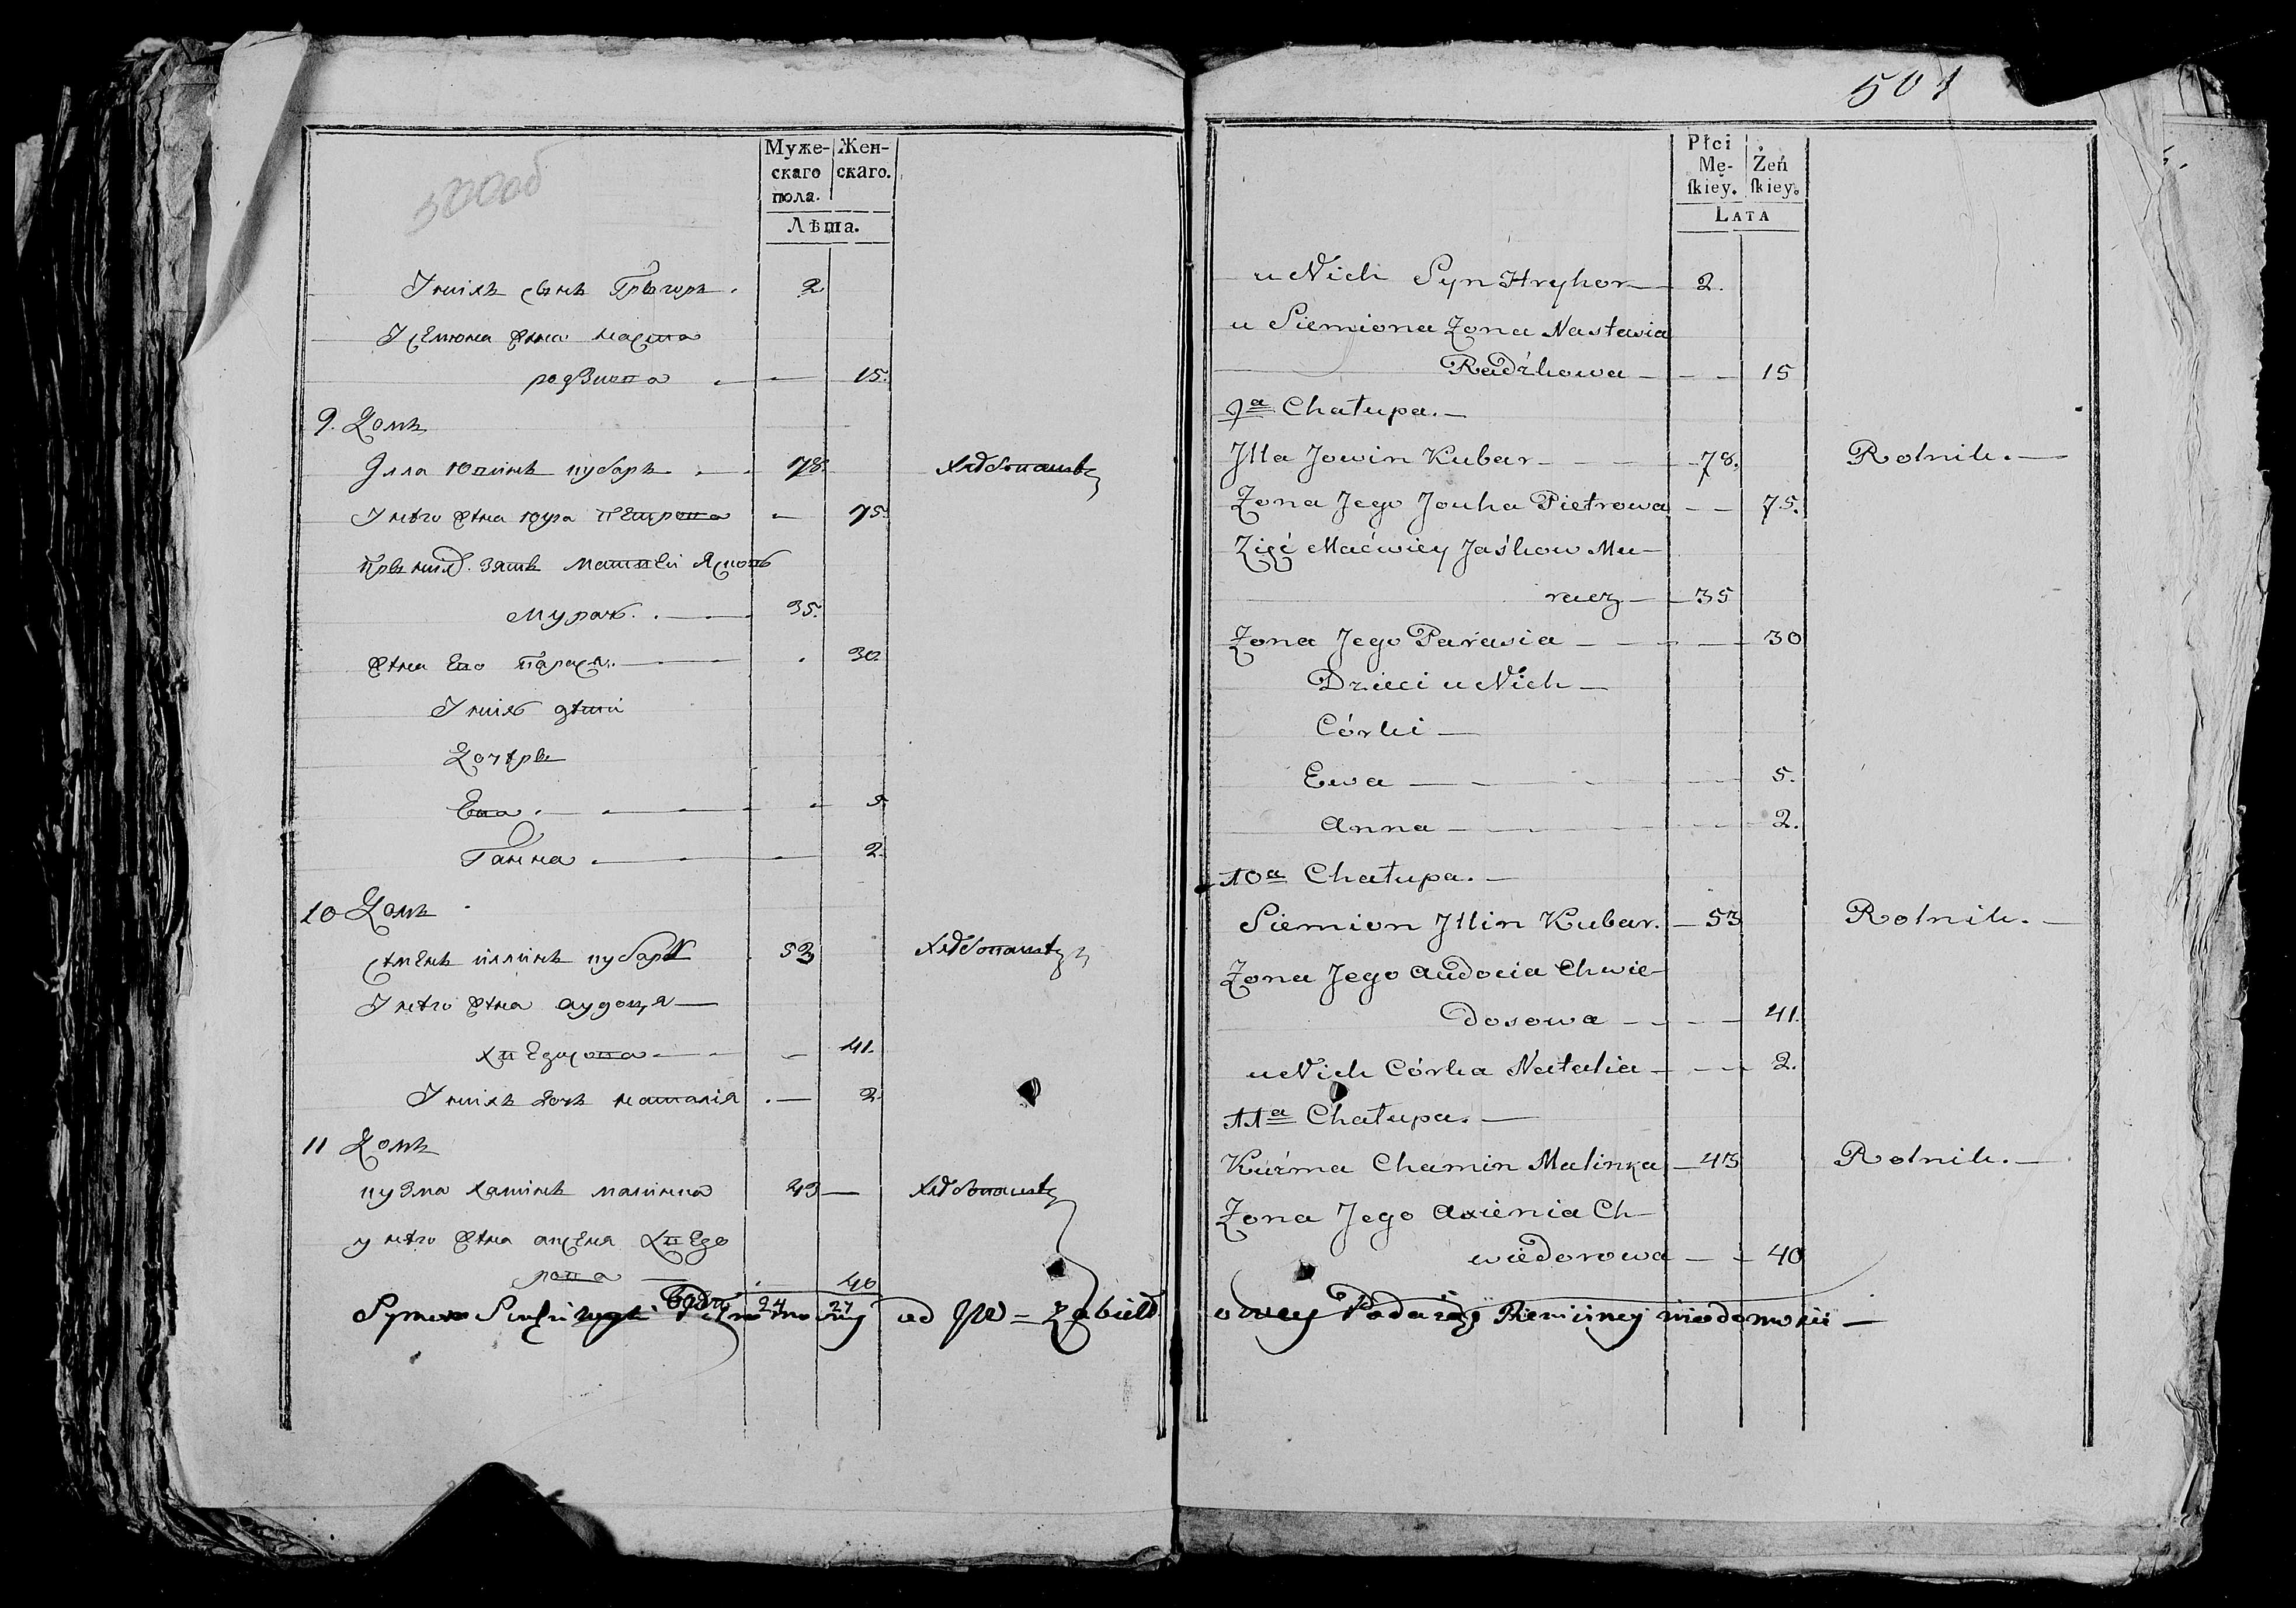 500об
Муже-
скаго
пола.
Жен-
скаго.
Лѣта.
У нихъ сынъ Грыгоръ. 2
У Семюна жена Настя
родзкова 15.
9. Домъ
Илла Ювинъ кубаръ 78 хлѣбопашецъ
У него жена Юука Петрова 75.
Прыния. зять Матвей Яськовъ
Мурач. 35.
Жена Его Парася. 30.
У нихъ дѣти
Дочеры
Ева. 5.
Ганна. 2.
10 Домъ
Семенъ иллинъ кубаръ 53 хлѣбопашецъ
У него жена аудоця
хведосова 41.
У нихъ дочь наталія 2.
11 Домъ
кузма хаминъ малинка 43 хлѣбопашецъ
у него жена аксеня хведо
рова 40
24 27
od JW = Zabiełł
501
Płci
Mę-
ſkiey.
Żeń
ſkiey.
LATA
u Nich Syn Hryhor 2.
u Siemiona Zona Nastazia
Radźkowa 15
9a Chałupa.
Jlla Jowin Kubar 78. Rolnik.
Zona Jego Jouha Pietrowa 75.
Zięć Maćwiey Jaśkow Mu-
racz 35
Zona Jego Parasia 30
Dzieci u Nich
Córki
Ewa 5.
Anna 2.
10a Chałupa.
Siemion Jllin Kubar. 53 Rolnik.
Zona Jego Audocia Chwie-
dosowa 41.
u Nich Córka Natalia 2.
11a Chałupa.
Kuźma Chamin Malinka 43 Rolnik.
Zona Jego Axienia Ch-
wiedorowa 40
owey